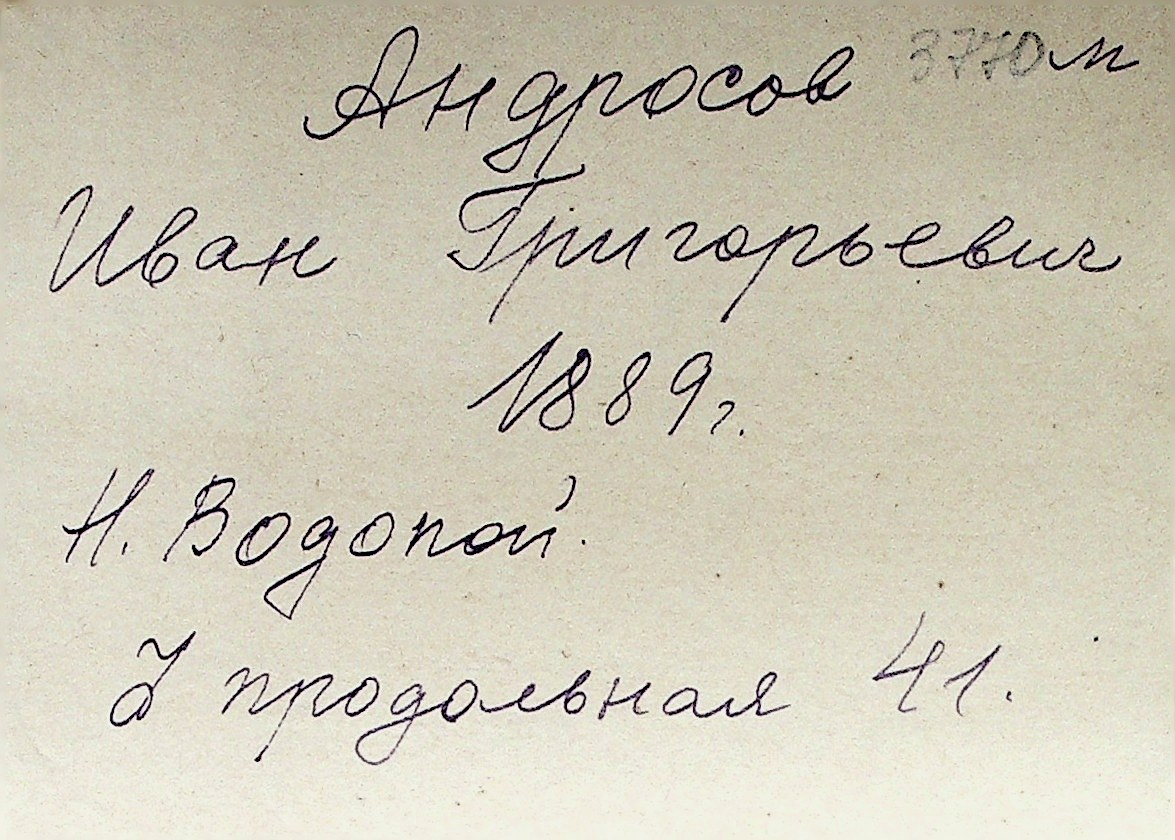 Андросов 3770 м
Иван Григорьевич
1889 г.
Н. Водопой.
I продольная 41.